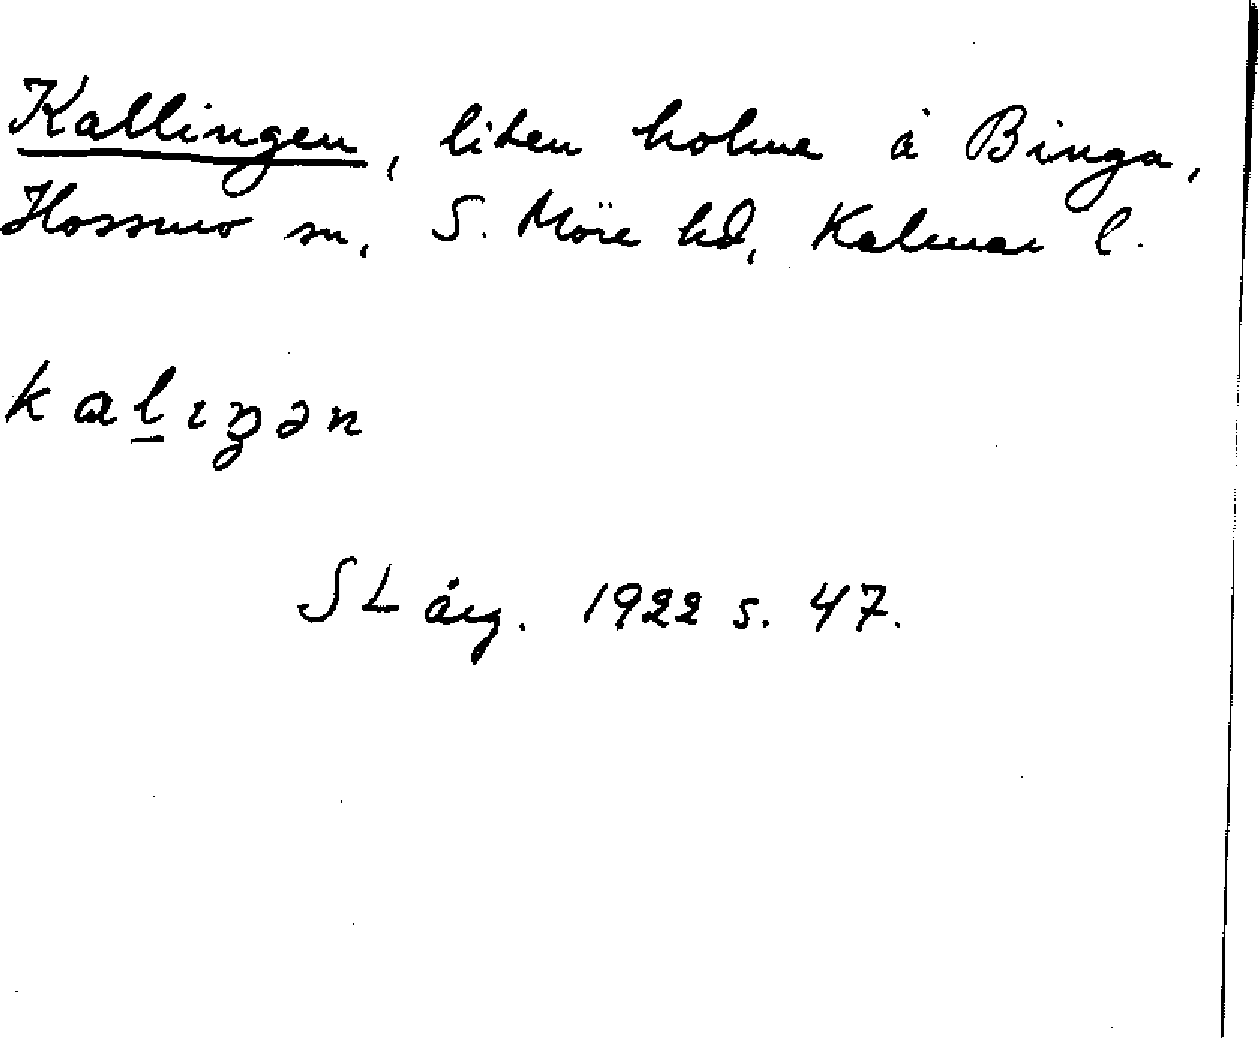 Kallingen, liten holme å Binga,
Hossmo sn, S. Möre hd, Kalmar l.
kalıŋən
SL årg. 1922 s. 47.